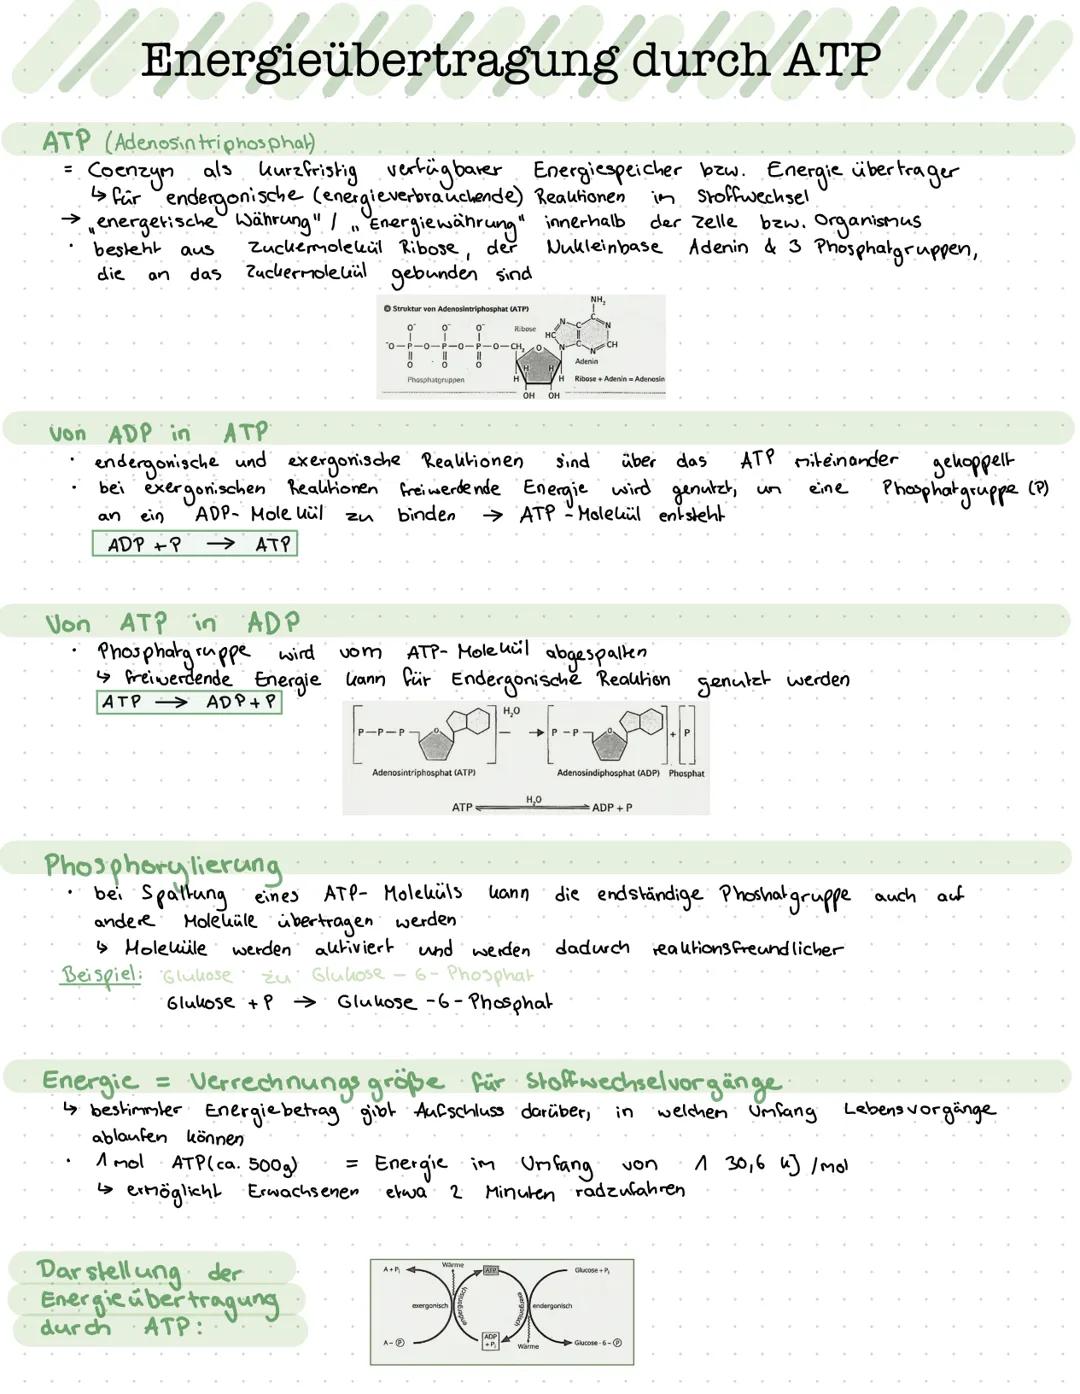 Energieübertragung durch ATP
ATP (Adenosintriphosphat)
= Coenzym als kurzfristig verfügbarer Energiespeicher bzw. Energieübertrager
↳ für endergonische (energieverbrauchende) Reaktionen im Stoffwechsel
→ „energetische Währung" / „Energiewährung" innerhalb der Zelle bzw. Organismus
• besteht aus Zuckermolekül Ribose, der Nukleinbase Adenin & 3 Phosphatgruppen,
die an das Zuckermolekül gebunden sind
Struktur von Adenosintriphosphat (ATP)
NH₂
O⁻ O⁻ O⁻ Ribose N C C N
⁻O-P-O-P-O-P-O-CH₂ O HC N C N CH
O O O
Adenin
Phosphatgruppen H H H H Ribose + Adenin = Adenosin
OH OH
Von ADP in ATP
• endergonische und exergonische Reaktionen sind über das ATP miteinander gekoppelt
• bei exergonischen Reaktionen freiwerdende Energie wird genutzt, um eine Phosphatgruppe (P)
an ein ADP-Molekül zu binden → ATP-Molekül entsteht
ADP + P → ATP
Von ATP in ADP
• Phosphatgruppe wird vom ATP-Molekül abgespalten
↳ freiwerdende Energie kann für Endergonische Reaktion genutzt werden
ATP → ADP + P
H₂O
P-P-P O → P-P O + P
Adenosintriphosphat (ATP) Adenosindiphosphat (ADP) Phosphat
H₂O
ATP ⇌ ADP + P
Phosphorylierung
• bei Spaltung eines ATP-Moleküls kann die endständige Phoshatgruppe auch auf
andere Moleküle übertragen werden
↳ Moleküle werden aktiviert und werden dadurch reaktionsfreundlicher
Beispiel: Glukose zu Glukose-6-Phosphat
Glukose + P → Glukose-6-Phosphat
Energie = Verrechnungsgröße für Stoffwechselvorgänge
↳ bestimmter Energiebetrag gibt Aufschluss darüber, in welchem Umfang Lebensvorgänge
ablaufen können
• 1 mol ATP (ca. 500g) = Energie im Umfang von 1 30,6 kJ/mol
↳ ermöglicht Erwachsenen etwa 2 Minuten radzufahren
Darstellung der
Energieübertragung
durch ATP:
A + Pᵢ Wärme ATP Glucose + Pᵢ
exergonisch endergonisch exergonisch endergonisch
A - P ADP + Pᵢ Wärme Glucose - 6 - P